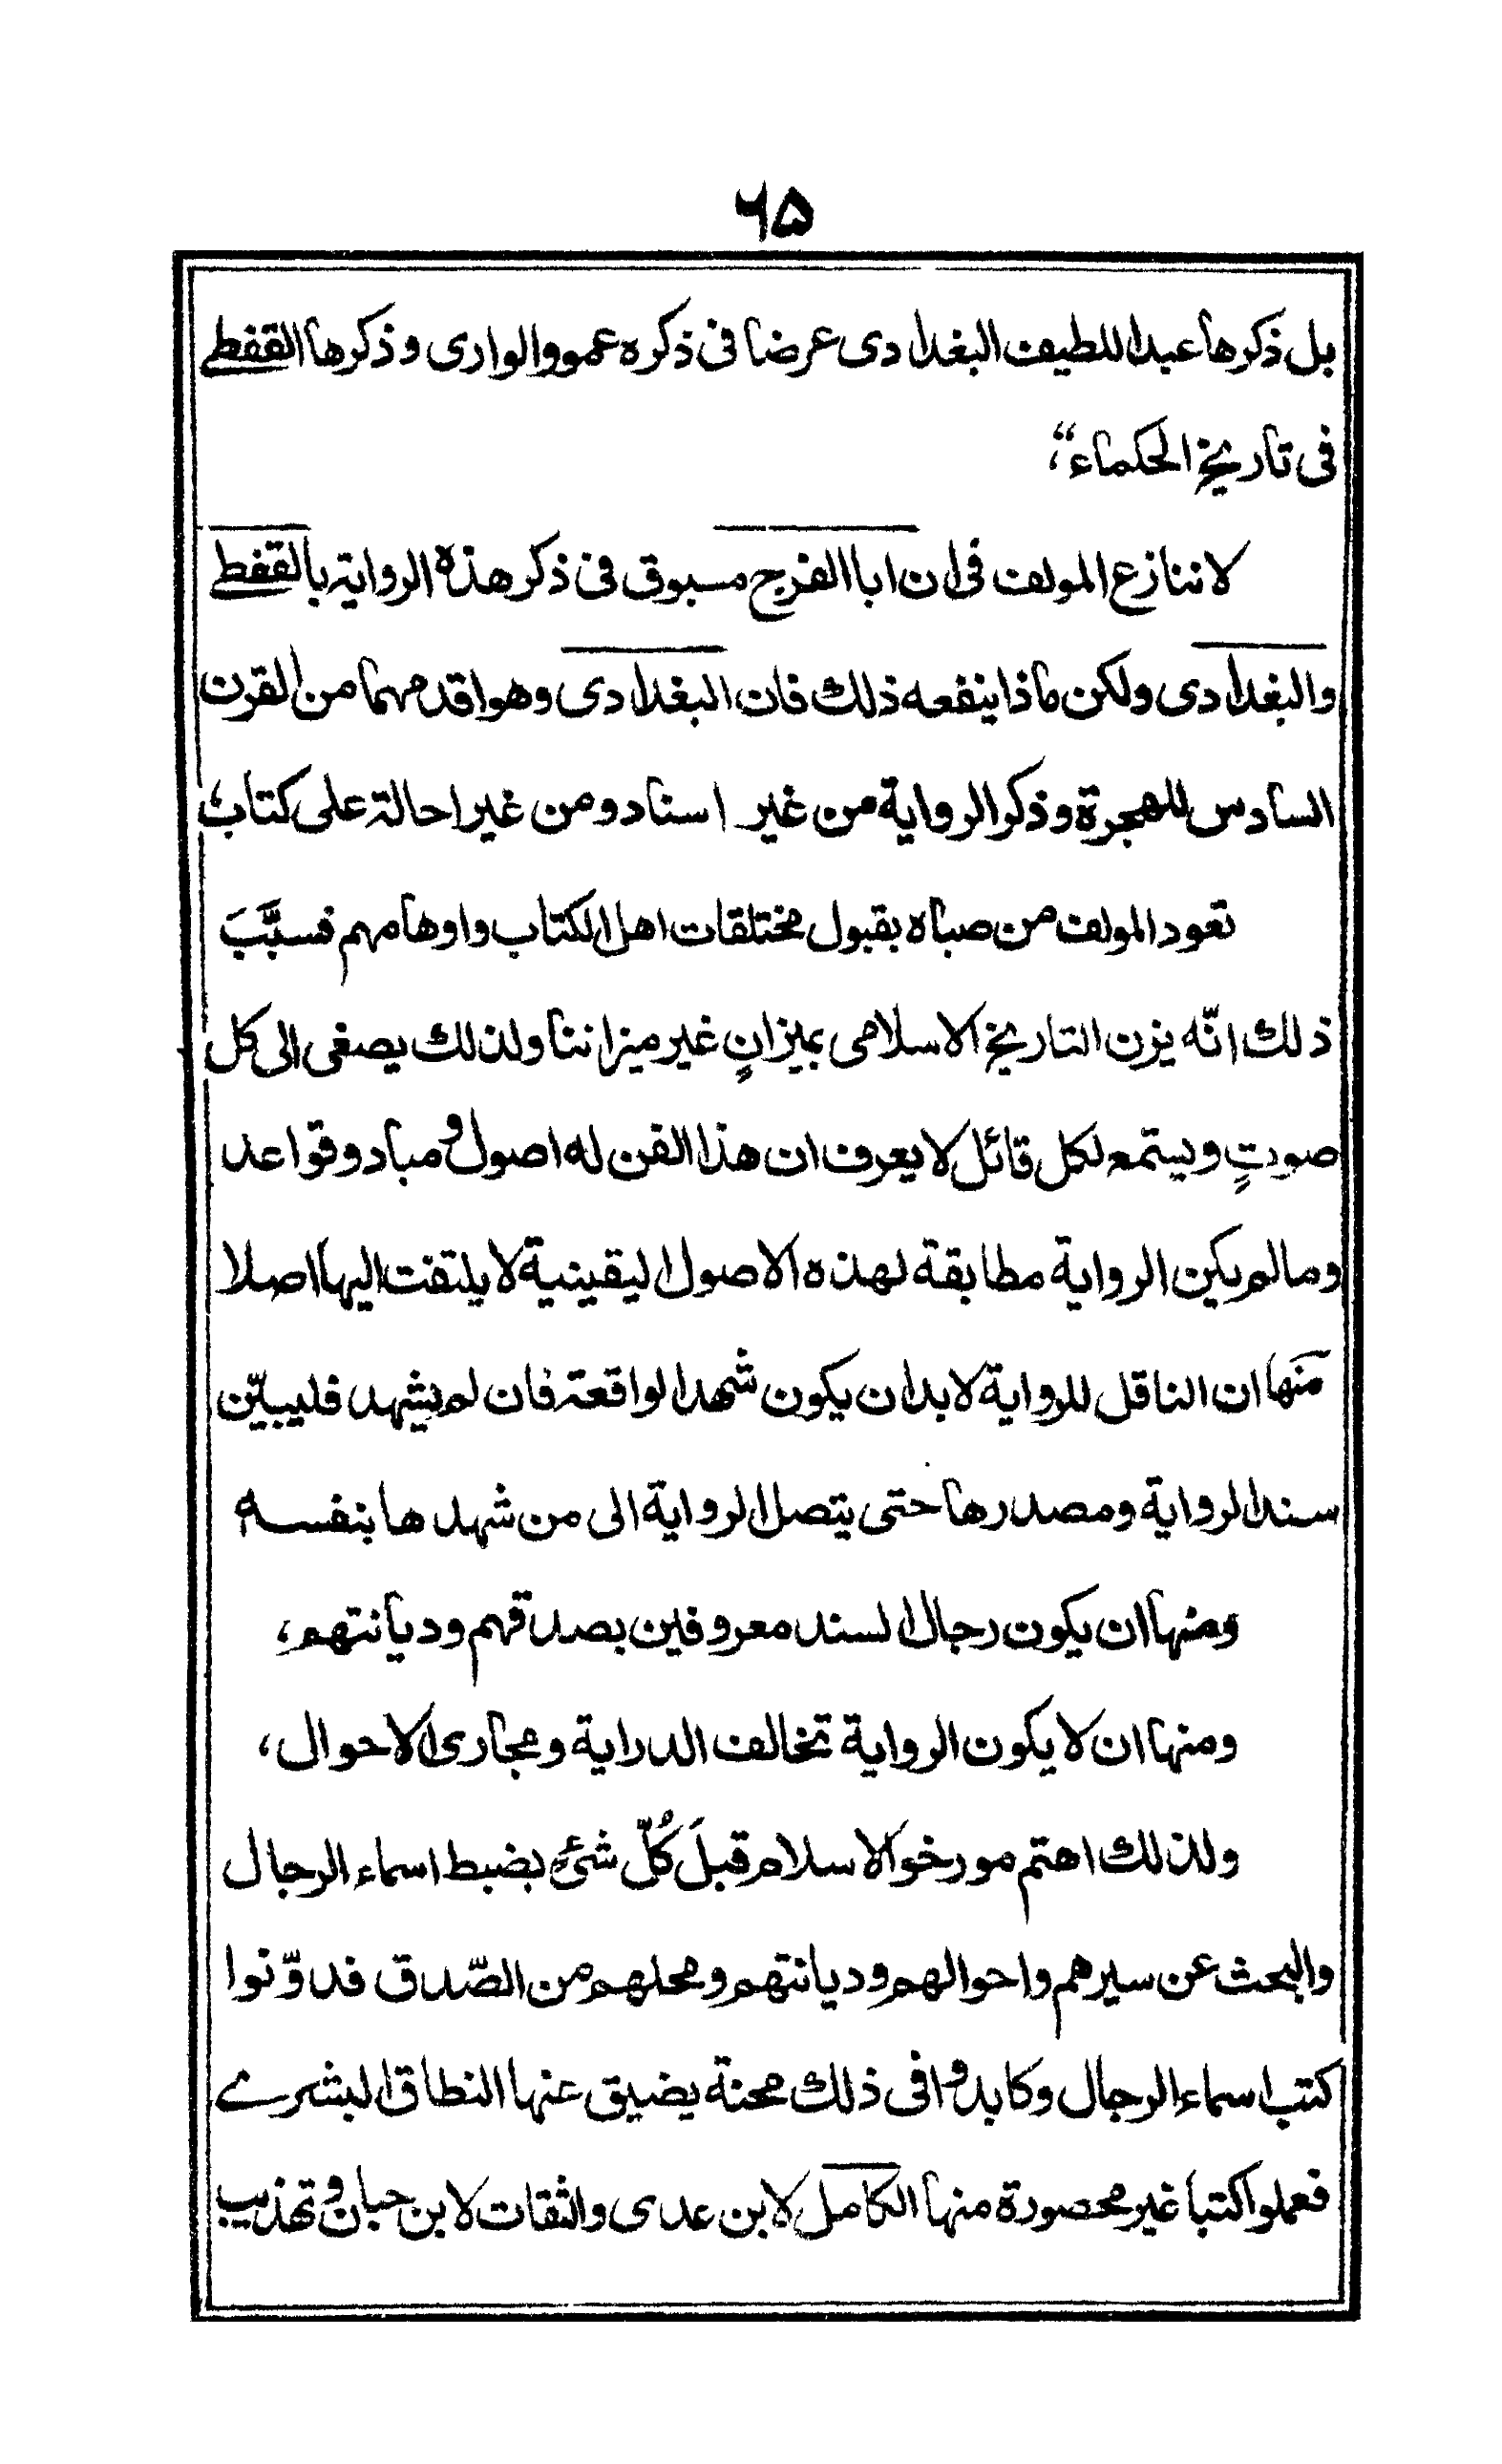 ۶۵
بل ذكرها عبد اللطيف البغدادى عرضا فى ذكره عموو الوارى و ذكرها القفطے
فى تاريخ الحكماء“،
لا ننازع المولف فى ان ابا الفرج مسبوق فى ذكر هذه الرواية بالقفطے
والبغدادى ولكن ماذا ينفعه ذلك فان البغدادى وهو اقدمهما من القرن
السادس للهجرة و ذكر الرواية من غير اسناد ومن غير احالة على كتاب؛
تعود المولف من صباه بقبول مختلقات اهل الكتاب واوهامهم فسبَّبَ
ذلك انّه يزن التاريخ الاسلامى بميزانٍ غير ميزاننا ولذلك يصغى الى كل
صوتٍ ويستمع لكل قائل لا يعرف ان هذا الفن له اصول و مباد وقواعد
وما لم يكن الرواية مطابقة لهذه الاصول اليقينية لا يلتفت اليها اصلا
منها ان الناقل للرواية لابد ان يكون شهد الواقعة فان لم يشهد فليبيّن
سند الرواية ومصدرها حتى يتصل الرواية الى من شهدها بنفسه
ومنها ان يكون رجال السند معروفين بصدقهم وديانتهم،
ومنها ان لا يكون الرواية تخالف الدراية ومجارى الاحوال،
ولذلك اهتم مورخو الاسلام قبلَ كُلّ شئ بضبط اسماء الرجال
والبحث عن سيرهم واحوالهم وديانتهم ومحلهم من الصّدق فدوّنوا
كتب اسماء الرجال وكابدوا فى ذلك محنة يضيق عنها النطاق البشرے
فعملوا كتبا غير محصورة منها الكامل لابن عدى والثقات لابن حبان و تهذيب